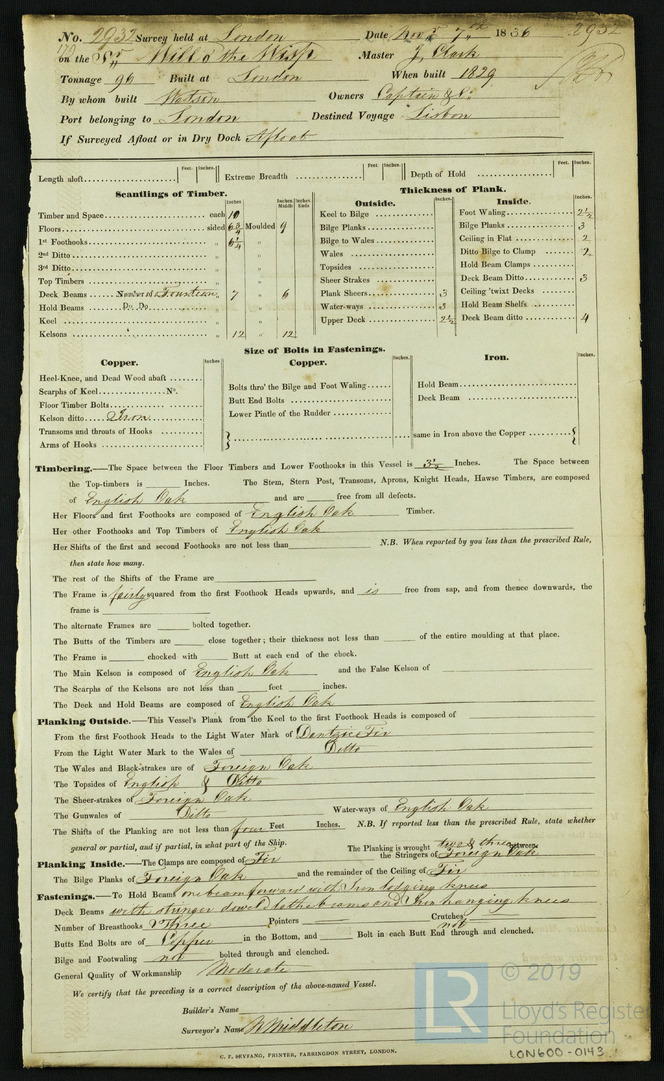 No. 2932 Survey held at London Date Nov 7th 1836 2932
on the Sr Will o' the Wisp Master J. Clark
Tonnage 96 Built at London When built 1829
By whom built Watson Owners Captain & Co.
Port belonging to London Destined Voyage Lisbon
If Surveyed Afloat or in Dry Dock Afloat
Length aloft Feet. Inches. Extreme Breadth Feet. Inches. Depth of Hold Feet. Inches.
Scantlings of Timber.
Inches Inches Middle Inches Ends
Timber and Space each 10
Floors sided 6 3/4 Moulded 9
1st Foothooks „ 6 1/4 „
2nd Ditto „ „
3rd Ditto „ „
Top Timbers „ „
Deck Beams Number of Fourteen „ 7 „ 6
Hold Beams Do. Do. „ „
Keel „ „
Kelsons „ 12 „ 12
Thickness of Plank.
Outside. Inches.
Keel to Bilge
Bilge Planks
Bilge to Wales
Wales
Topsides
Sheer Strakes
Plank Sheers 3
Water-ways 3
Upper Deck 2 1/2
Inside. Inches.
Foot Waling 2 1/2
Bilge Planks 3
Ceiling in Flat 2
Ditto Bilge to Clamp 2
Hold Beam Clamps
Deck Beam Ditto 3
Ceiling 'twixt Decks
Hold Beam Shelfs
Deck Beam ditto 4
Size of Bolts in Fastenings.
Copper. Inches
Heel-Knee, and Dead Wood abaft
Scarphs of Keel No.
Floor Timber Bolts
Kelson ditto Iron
Transoms and throats of Hooks
Arms of Hooks
Copper. Inches.
Bolts thro' the Bilge and Foot Waling
Butt End Bolts
Lower Pintle of the Rudder
Iron. Inches.
Hold Beam
Deck Beam
same in Iron above the Copper
Timbering.—The Space between the Floor Timbers and Lower Foothooks in this Vessel is 3 1/2 Inches. The Space between
the Top-timbers is Inches. The Stem, Stern Post, Transoms, Aprons, Knight Heads, Hawse Timbers, are composed
of English Oak and are free from all defects.
Her Floors and first Foothooks are composed of English Oak Timber.
Her other Foothooks and Top Timbers of English Oak
Her Shifts of the first and second Foothooks are not less than N.B. When reported by you less than the prescribed Rule,
then state how many.
The rest of the Shifts of the Frame are
The Frame is fairly squared from the first Foothook Heads upwards, and is free from sap, and from thence downwards, the
frame is
The alternate Frames are bolted together.
The Butts of the Timbers are close together; their thickness not less than of the entire moulding at that place.
The Frame is chocked with Butt at each end of the chock.
The Main Kelson is composed of English Oak and the False Kelson of
The Scarphs of the Kelsons are not less than feet inches.
The Deck and Hold Beams are composed of English Oak
Planking Outside.—This Vessel's Plank from the Keel to the first Foothook Heads is composed of
From the first Foothook Heads to the Light Water Mark of Dantzic Fir
From the Light Water Mark to the Wales of Ditto
The Wales and Black-strakes are of Foreign Oak
The Topsides of English & Ditto
The Sheer-strakes of Foreign Oak
The Gunwales of Ditto Water-ways of English Oak
The Shifts of the Planking are not less than four Feet Inches. N.B. If reported less than the prescribed Rule, state whether
general or partial, and if partial, in what part of the Ship. The Planking is wrought two & three between.
Planking Inside.—The Clamps are composed of Fir the Stringers of Foreign Oak
The Bilge Planks of Foreign Oak and the remainder of the Ceiling of Fir
Fastenings.—To Hold Beams one beam forward with Iron lodging knees
Deck Beams with stringer dowel'd to the beams and Iron hanging knees
Number of Breasthooks Three Pointers Crutches
Butts End Bolts are of Copper in the Bottom, and not Bolt in each Butt End through and clenched.
Bilge and Footwaling not bolted through and clenched.
General Quality of Workmanship Moderate
We certify that the preceding is a correct description of the above-named Vessel.
Builder's Name
Surveyor's Name W Middleton
C. F. SEYFANG, PRINTER, FARRINGDON STREET, LONDON.
LR © 2019
Lloyd's Register
Foundation
LON600-0143